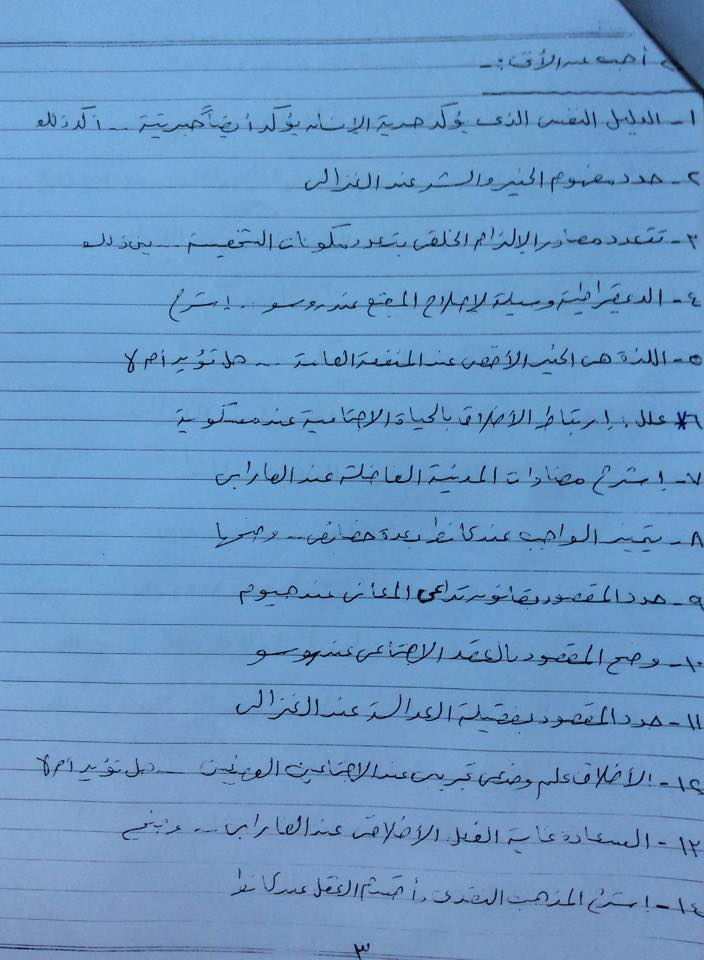 أجب عن الأتى :-
١- الدليل النفسى الذى يؤكد حرية الإنسان يؤكد أيضاً جبريتة -- أكد ذلك
٢- حدد مفهوم الخير والشر عند الغزالى
٣- تتعدد مصادر الإلزام الخلقى بتعدد مكونات الشخصية -- بين ذلك
٤- الديمقراطية وسيلة لإصلاح المجتمع عند روسو .. إشرح
٥- اللذة هى الخير الأقصى عند المنفعة العامة -- هل تؤيد أم لا
٦* علل : إرتباط الأخلاق بالحياة الإجتماعية عند مسكوية
٧- إشرح مضادات المدينة الفاضلة عند الفارابى
٨- يتميز الواجب عند كانط بعدة خصائص -- وضحها
٩- حدد المقصود بقانون تداعى المعانى عند هيوم
١٠- وضح المقصود بالعقد الاجتماعى عند روسو
١١- حدد المقصود بفضيلة العدالة عند الغزالى
١٢- الأخلاق علم وضعى تجريبى عند الاجتماعيين الوضعيين -- هل تؤيد أم لا
١٣- السعادة غاية الفعل الأخلاقى عند الفارابى -- وضح
١٤- إشرح المذهب النقدى العقل عند كانط
٣